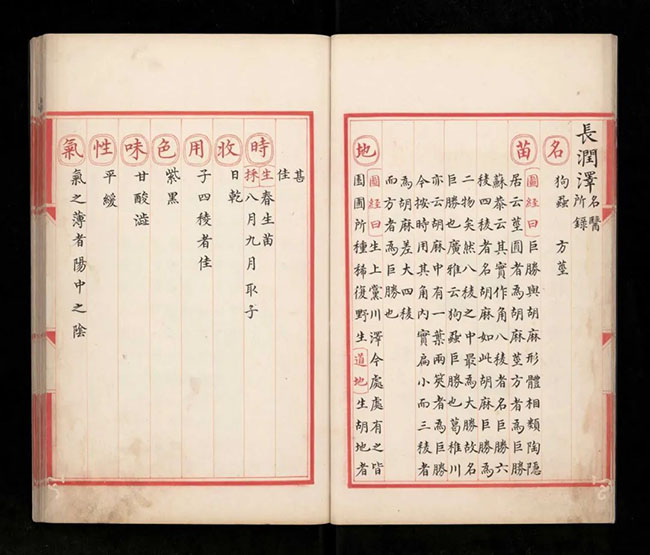 長潤澤 名醫所錄
名 狗蝨 方莖
苗 圖經曰巨勝與胡麻形體相類陶隱
居云莖圓者爲胡麻莖方者爲巨勝
蘇恭云其實作角八稜者名巨勝六
稜四稜者名胡麻如此胡麻巨勝爲
二物矣然八稜之中最爲大勝故名
巨勝也廣雅云狗蝨巨勝也葛稚川
亦云胡麻中有一葉兩筴者爲巨勝
今按時用其角內實扁小而三稜者
爲胡麻差大四稜
而方者爲巨勝也
地 圖經曰生上黨川澤今處處有之皆
園圃所種稀復野生道地生胡地者
甚
佳
時 生春生苗
採八月九月取子
收 日乾
用 子四稜者佳
色 紫黑
味 甘酸澁
性 平緩
氣 氣之薄者陽中之陰